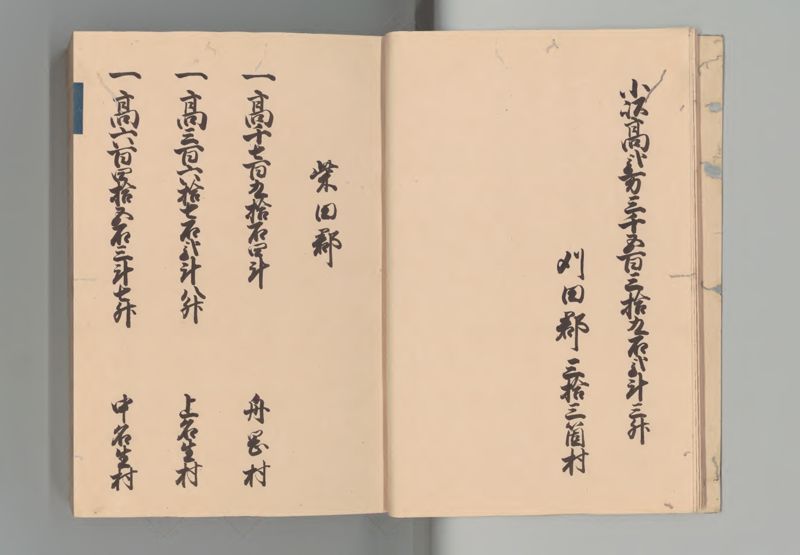 小以高弐万三千五百三拾九石弐斗三升
刈田郡三拾三箇村
柴田郡
一高千七百九拾石四斗 舟岡村
一高三百六拾七石弐斗八升 上名生村
一高六百四拾五石三斗七升 中名生村